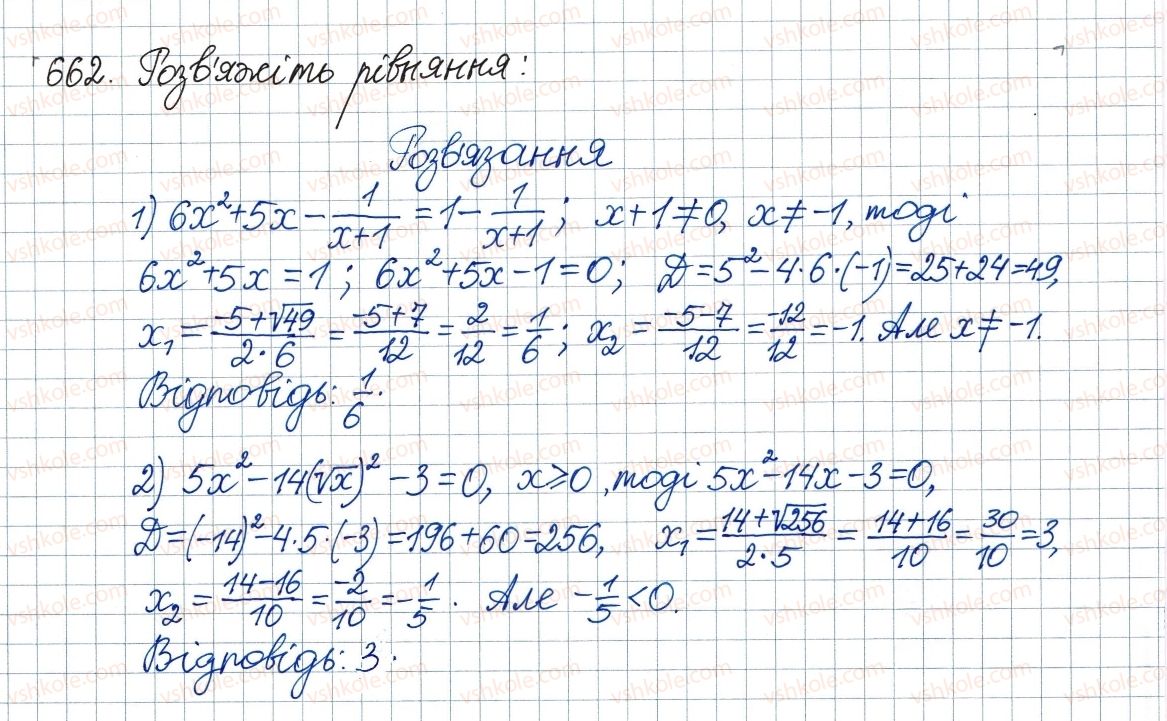 662. Розв'яжіть рівняння:
Розв'язання
1) 6x²+5x - 1/(x+1) = 1 - 1/(x+1); x+1≠0, x≠-1, тоді
6x²+5x=1; 6x²+5x-1=0; Д=5²-4·6·(-1)=25+24=49,
x₁ = (-5+√49)/(2·6) = (-5+7)/12 = 2/12 = 1/6; x₂ = (-5-7)/12 = -12/12 = -1. Але x≠-1.
Відповідь: 1/6.
2) 5x²-14(√x)²-3=0, x⩾0, тоді 5x²-14x-3=0,
Д=(-14)²-4·5·(-3)=196+60=256, x₁ = (14+√256)/(2·5) = (14+16)/10 = 30/10 = 3,
x₂ = (14-16)/10 = -2/10 = -1/5. Але -1/5<0.
Відповідь: 3.
vshkole.com